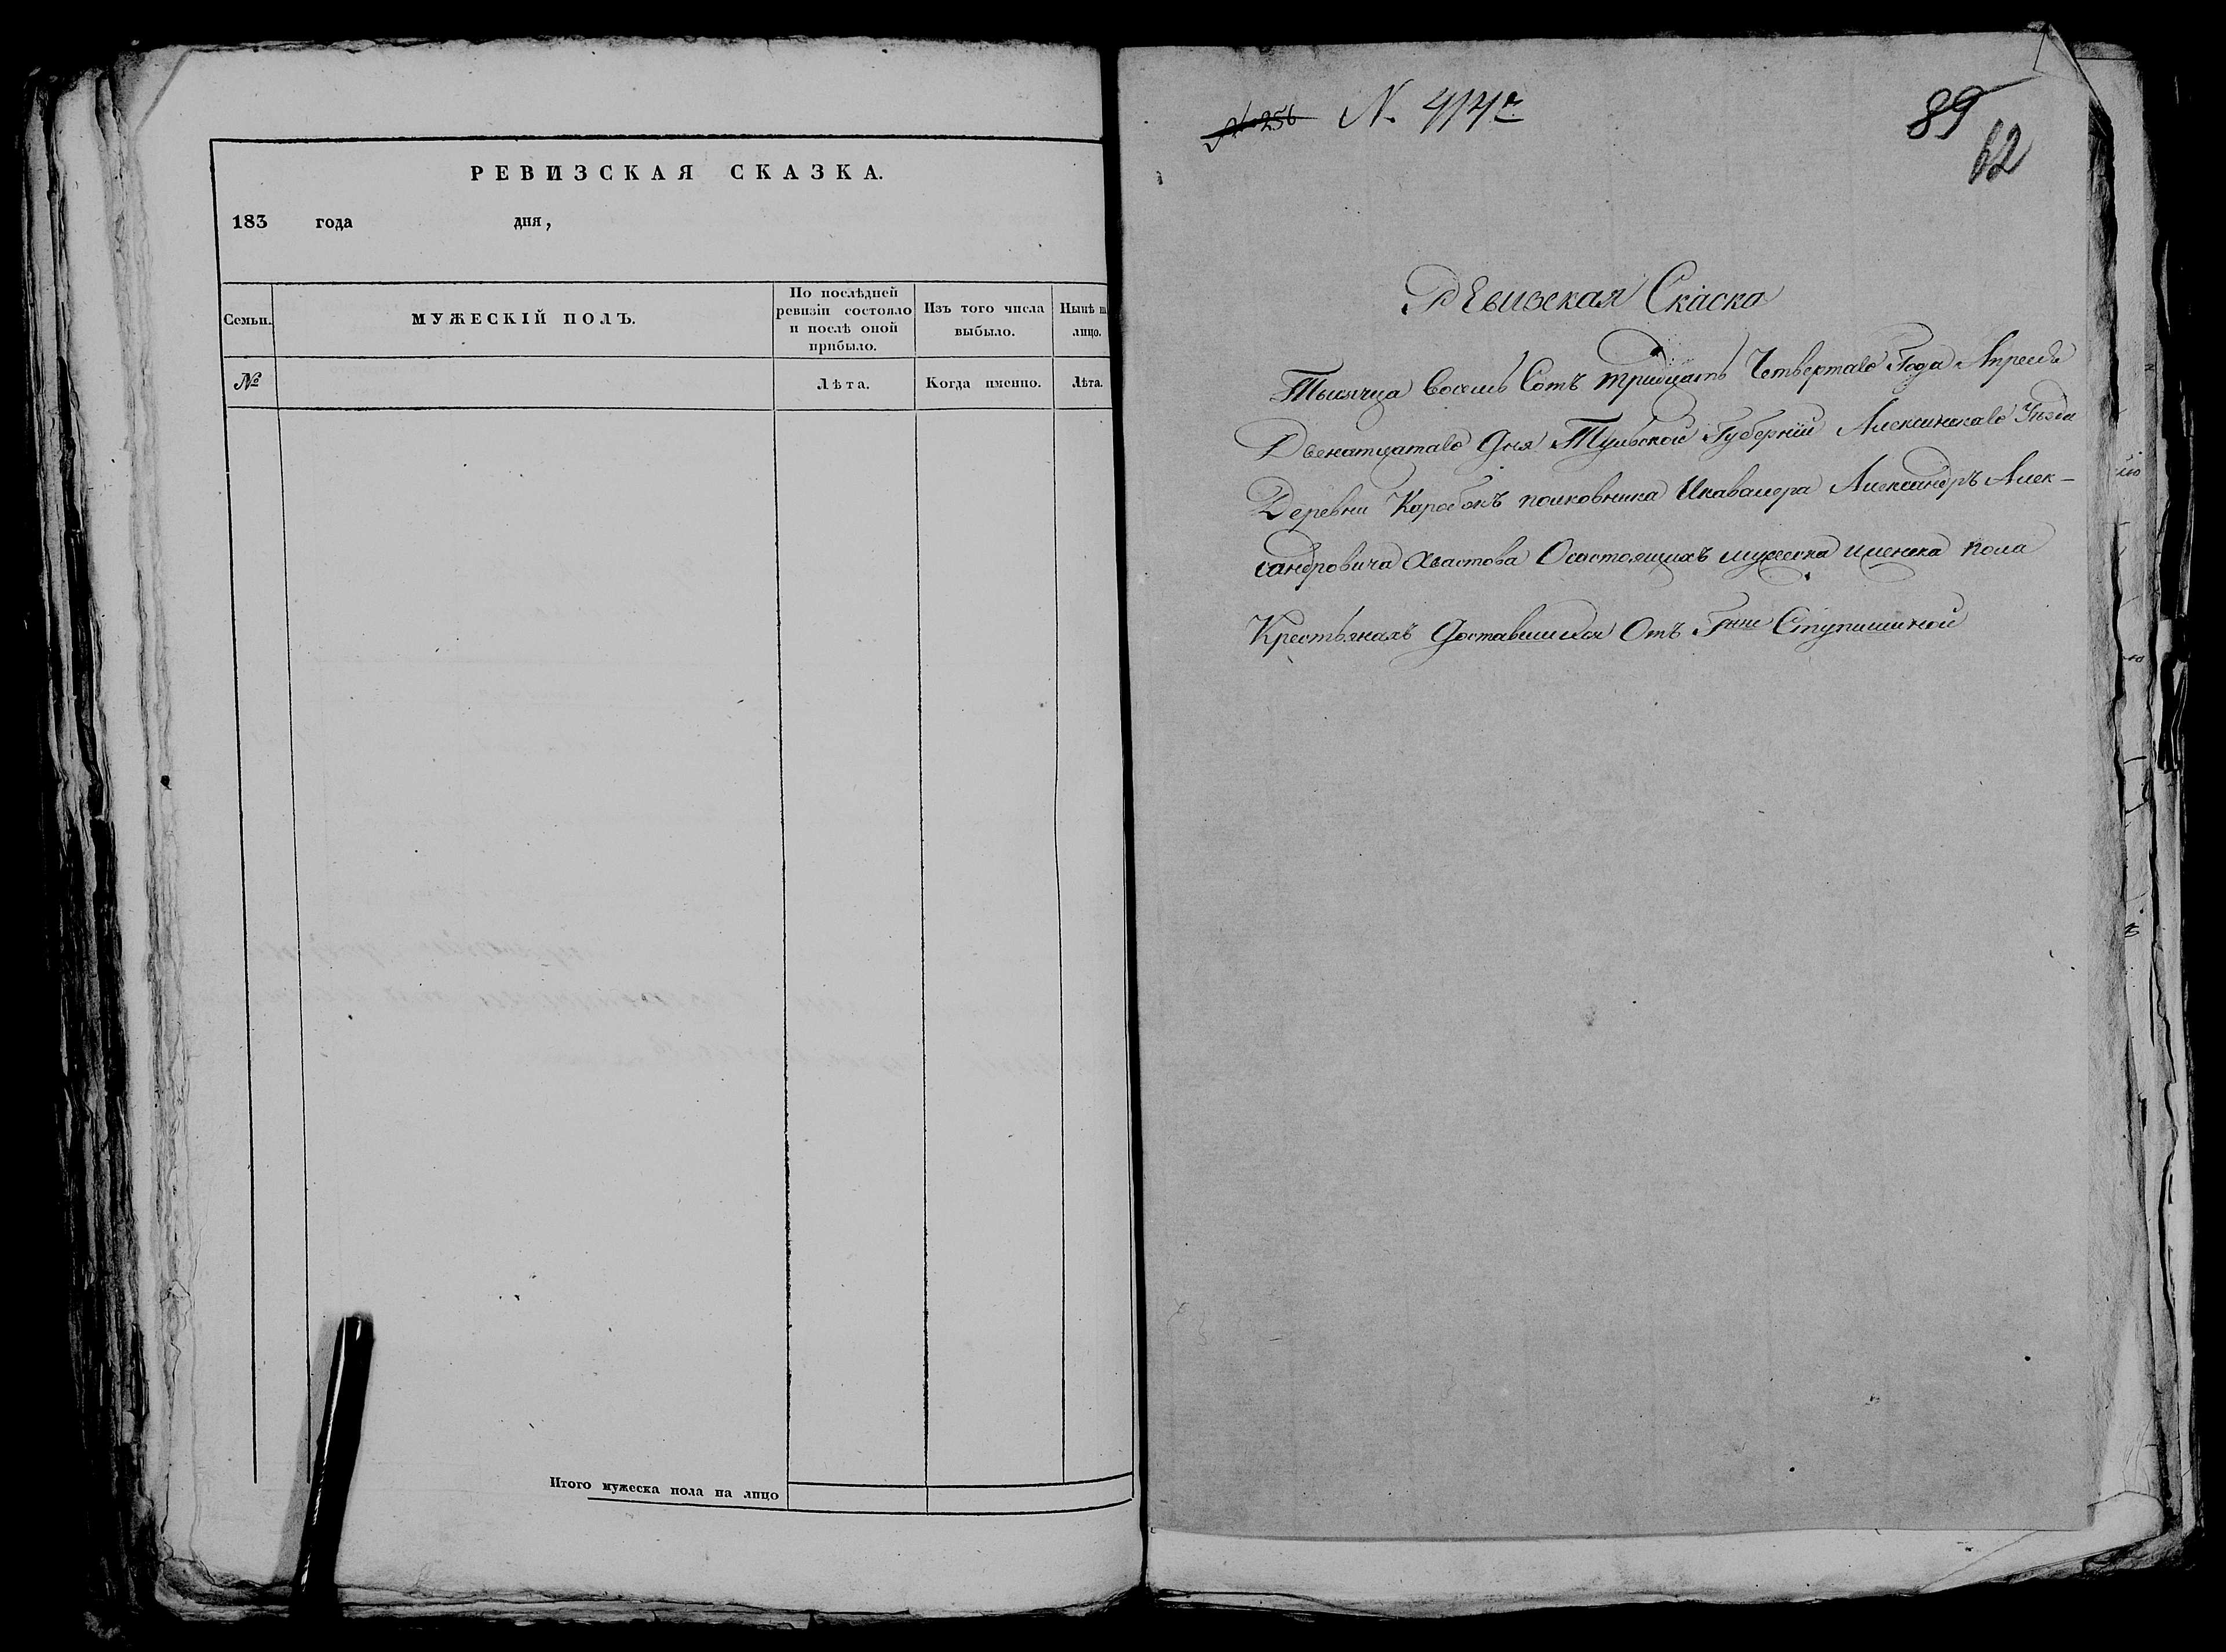 РЕВИЗСКАЯ СКАЗКА.
183 года дня,
Семьи.
МУЖЕСКІЙ ПОЛЪ.
По послѣдней
ревизіи состояло
и послѣ оной
прибыло.
Изъ того числа
выбыло.
Нынѣ на
лицо.
№
Лѣта.
Когда именно.
Лѣта.
Итого мужеска пола на лицо
№ 256 N. 414
89
62
Ревизская Скаска
Тысяча восемь Сотъ тридцать Четвертаво Года Апреля
Двенатцатаво Дня Тульской Губернии Алексинскаво Уезда
Деревни Коробокъ полковника Икавалера Александръ Алек-
сандровича Хвастова Осостоящихъ мужеска иженска пола
Крестьянахъ Доставшихся Отъ Гжи Ступишиной